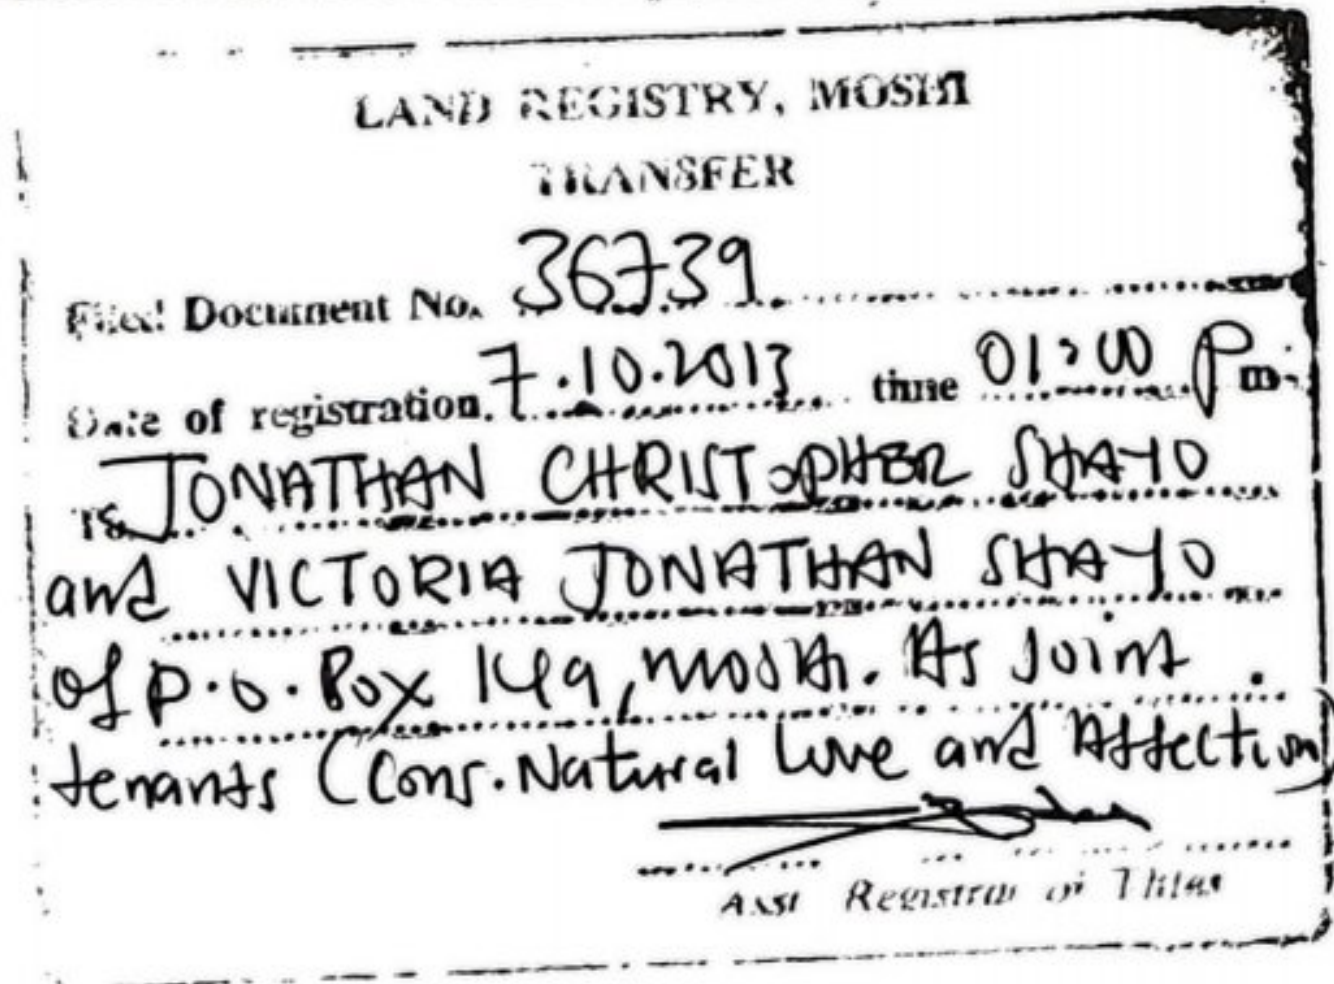 LAND REGISTRY, MOSHI
TRANSFER
Filed Document No. 36739
Date of registration 7.10.2013 time 01:00 Pm
To JONATHAN CHRISTOPHER SHAYO
and VICTORIA JONATHAN SHAYO
of P.O. Box 149, Moshi. As Joint
tenants (Cons. Natural Love and Affection)
Asst Registrar of Titles